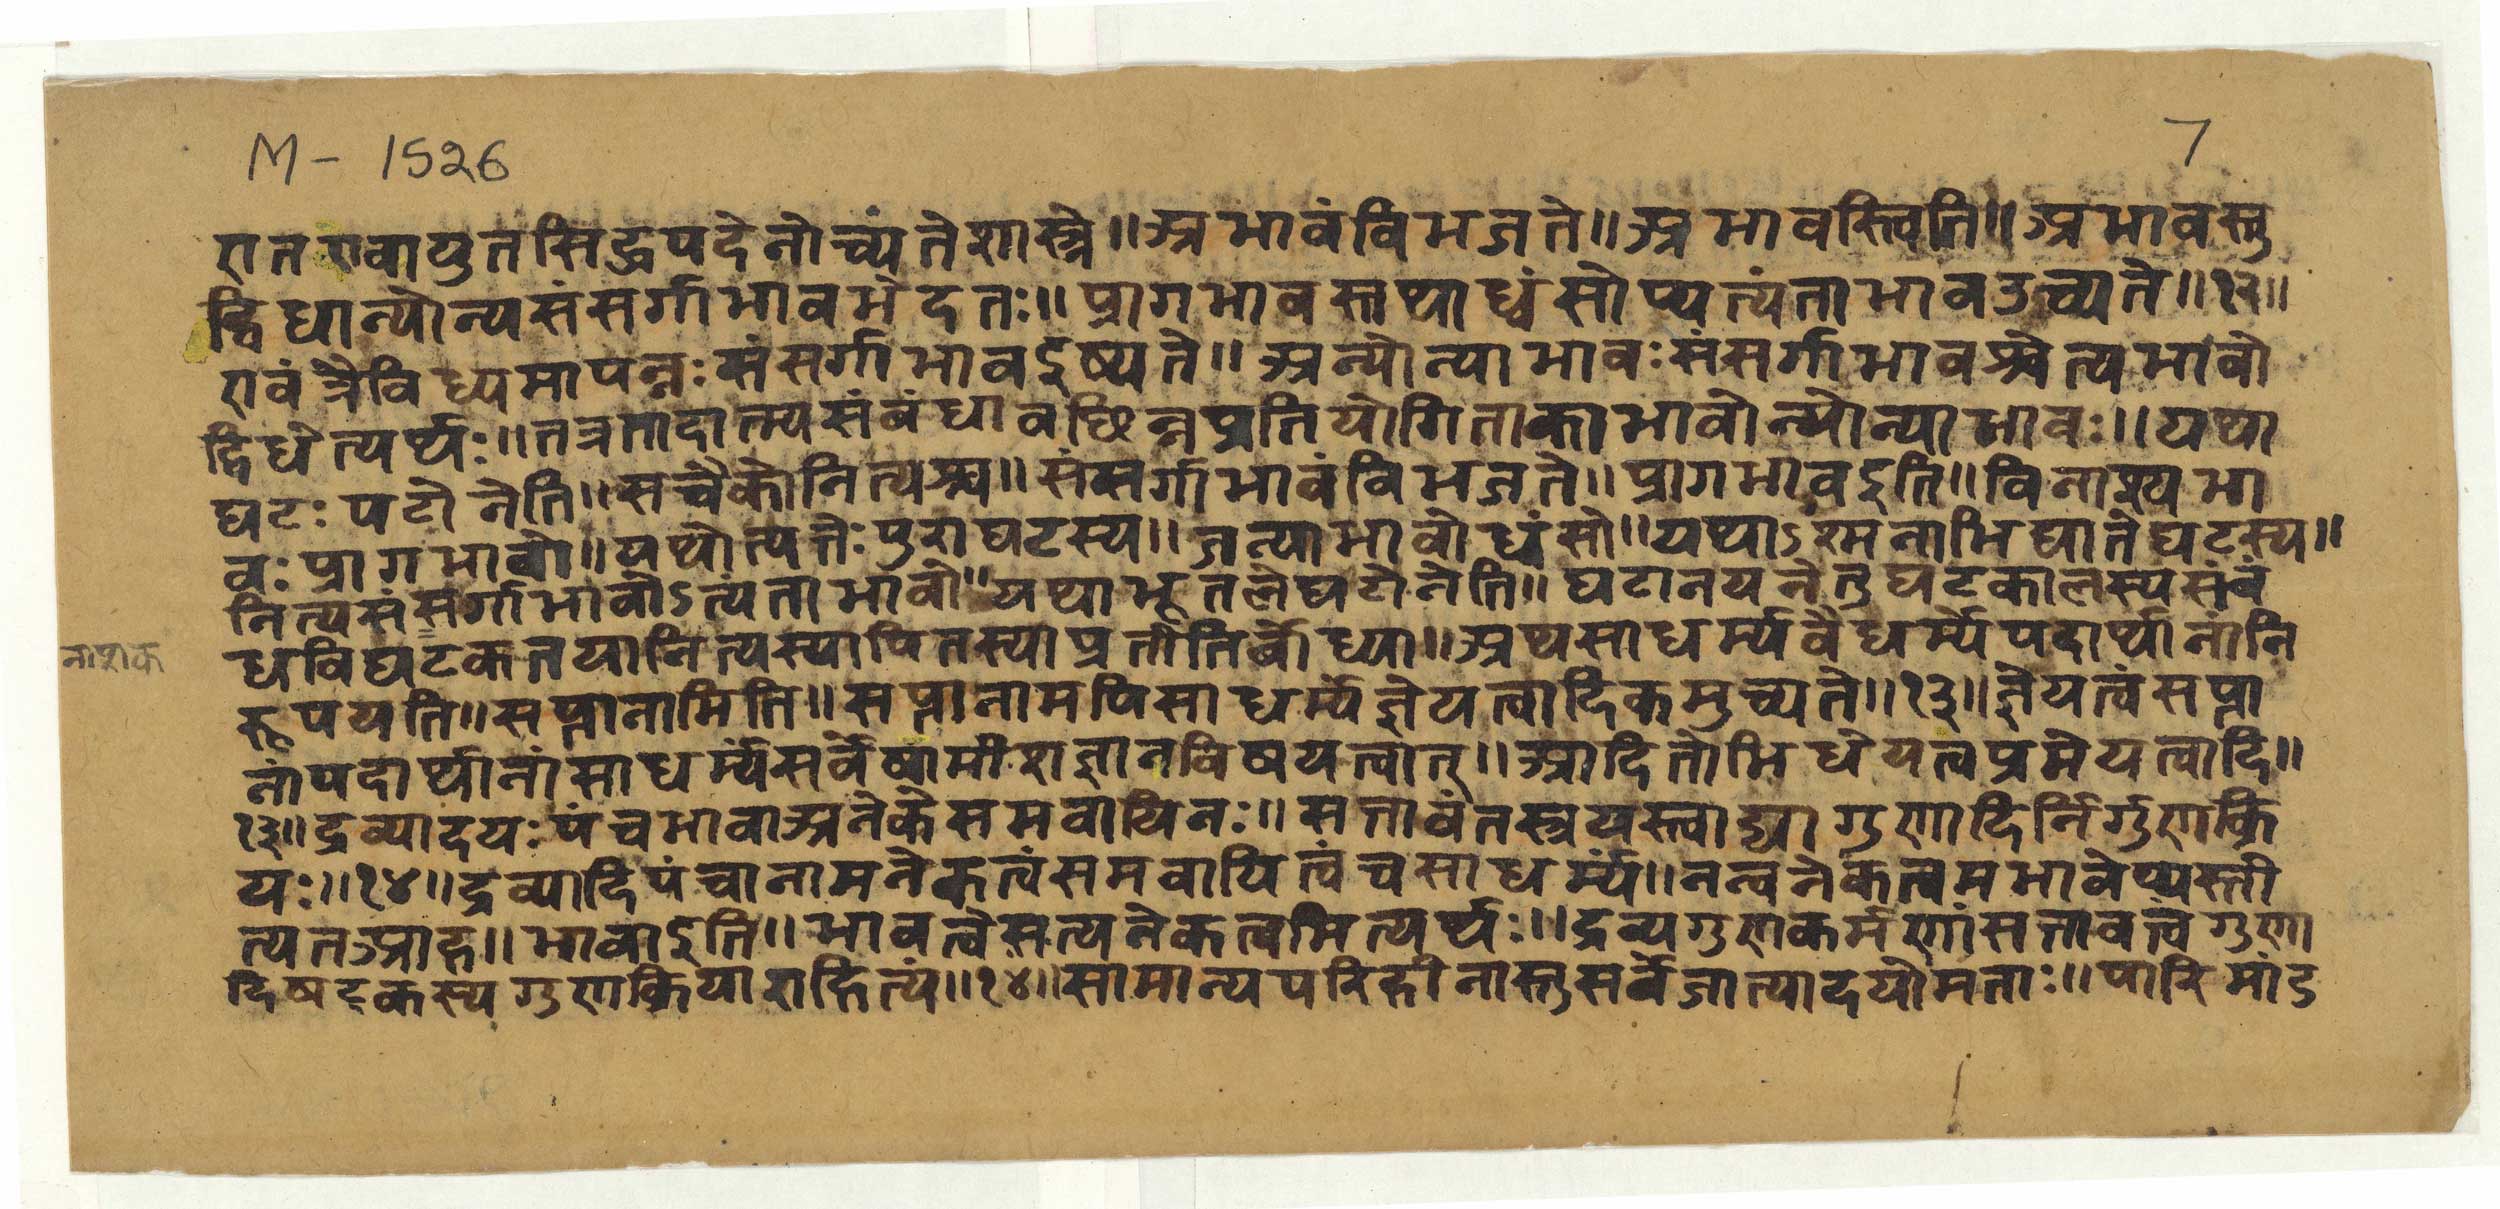 M - 1526
7
एत एवायुतसिद्धपदेनोच्यंतेशास्त्रे॥अभावंविभजते॥अभावस्त्विति॥अभावस्तु
द्विधान्योन्यसंसर्गाभावभेदतः॥प्रागभावस्तथाध्वंसोप्यत्यंताभावउच्यते॥१२॥
एवंत्रैविध्यमापन्नःसंसर्गाभावइष्यते॥अन्योन्याभावःसंसर्गाभावश्चेत्यभावो
द्विधेत्यर्थः॥तत्रतादात्म्यसंबंधावछिन्नप्रतियोगिताकाभावोन्योन्याभावः॥यथा
घटःपटोनेति॥सचैकोनित्यश्च॥संसर्गाभावंविभजते॥प्रागभावइति॥विनाश्यभा
वःप्रागभावो॥यथोत्पत्तेःपुराघटस्य॥जन्याभावोध्वंसो॥यथाऽश्मनाभिघातेघटस्य॥
नित्यसंसर्गाभावोऽत्यंताभावो॥यथाभूतलेघटोनेति॥घटानयनेतुघटकालस्यसंबं
धविघटकतयानित्यस्यापितस्याप्रतीतिर्बोध्या॥अथसाधर्म्यवैधर्म्येपदार्थानांनि
नाशक
रूपयति॥सप्तानामिति॥सप्तानामपिसाधर्म्यंज्ञेयत्वादिकमुच्यते॥१३॥ज्ञेयत्वंसप्ता
नांपदार्थानांसाधर्म्यंसर्वेषामीशज्ञानविषयत्वात्॥आदितोभिधेयत्वप्रमेयत्वादि॥
१३॥द्रव्यादयःपंचभावाअनेकेसमवायिनः॥सत्तावंतस्त्रयस्त्वाद्यागुणादिर्निर्गुणक्रि
यः॥१४॥द्रव्यादिपंचानामनेकत्वंसमवायित्वंचसाधर्म्यं॥नन्वनेकत्वमभावेप्यस्ती
त्यतआह॥भावाइति॥भावत्वेसत्यनेकत्वमित्यर्थः॥द्रव्यगुणकर्मणांसत्तावत्वंगुणा
दिषट्कस्यगुणक्रियाराहित्यं॥१४॥सामान्यपरिहीनास्तुसर्वेजात्यादयोमताः॥पारिमांड